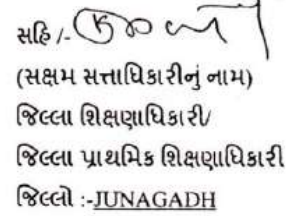 સહિ /-
(સક્ષમ સત્તાધિકારીનું નામ)
જિલ્લા શિક્ષણાધિકારી/
જિલ્લા પ્રાથમિક શિક્ષણાધિકારી
જિલ્લો :-JUNAGADH